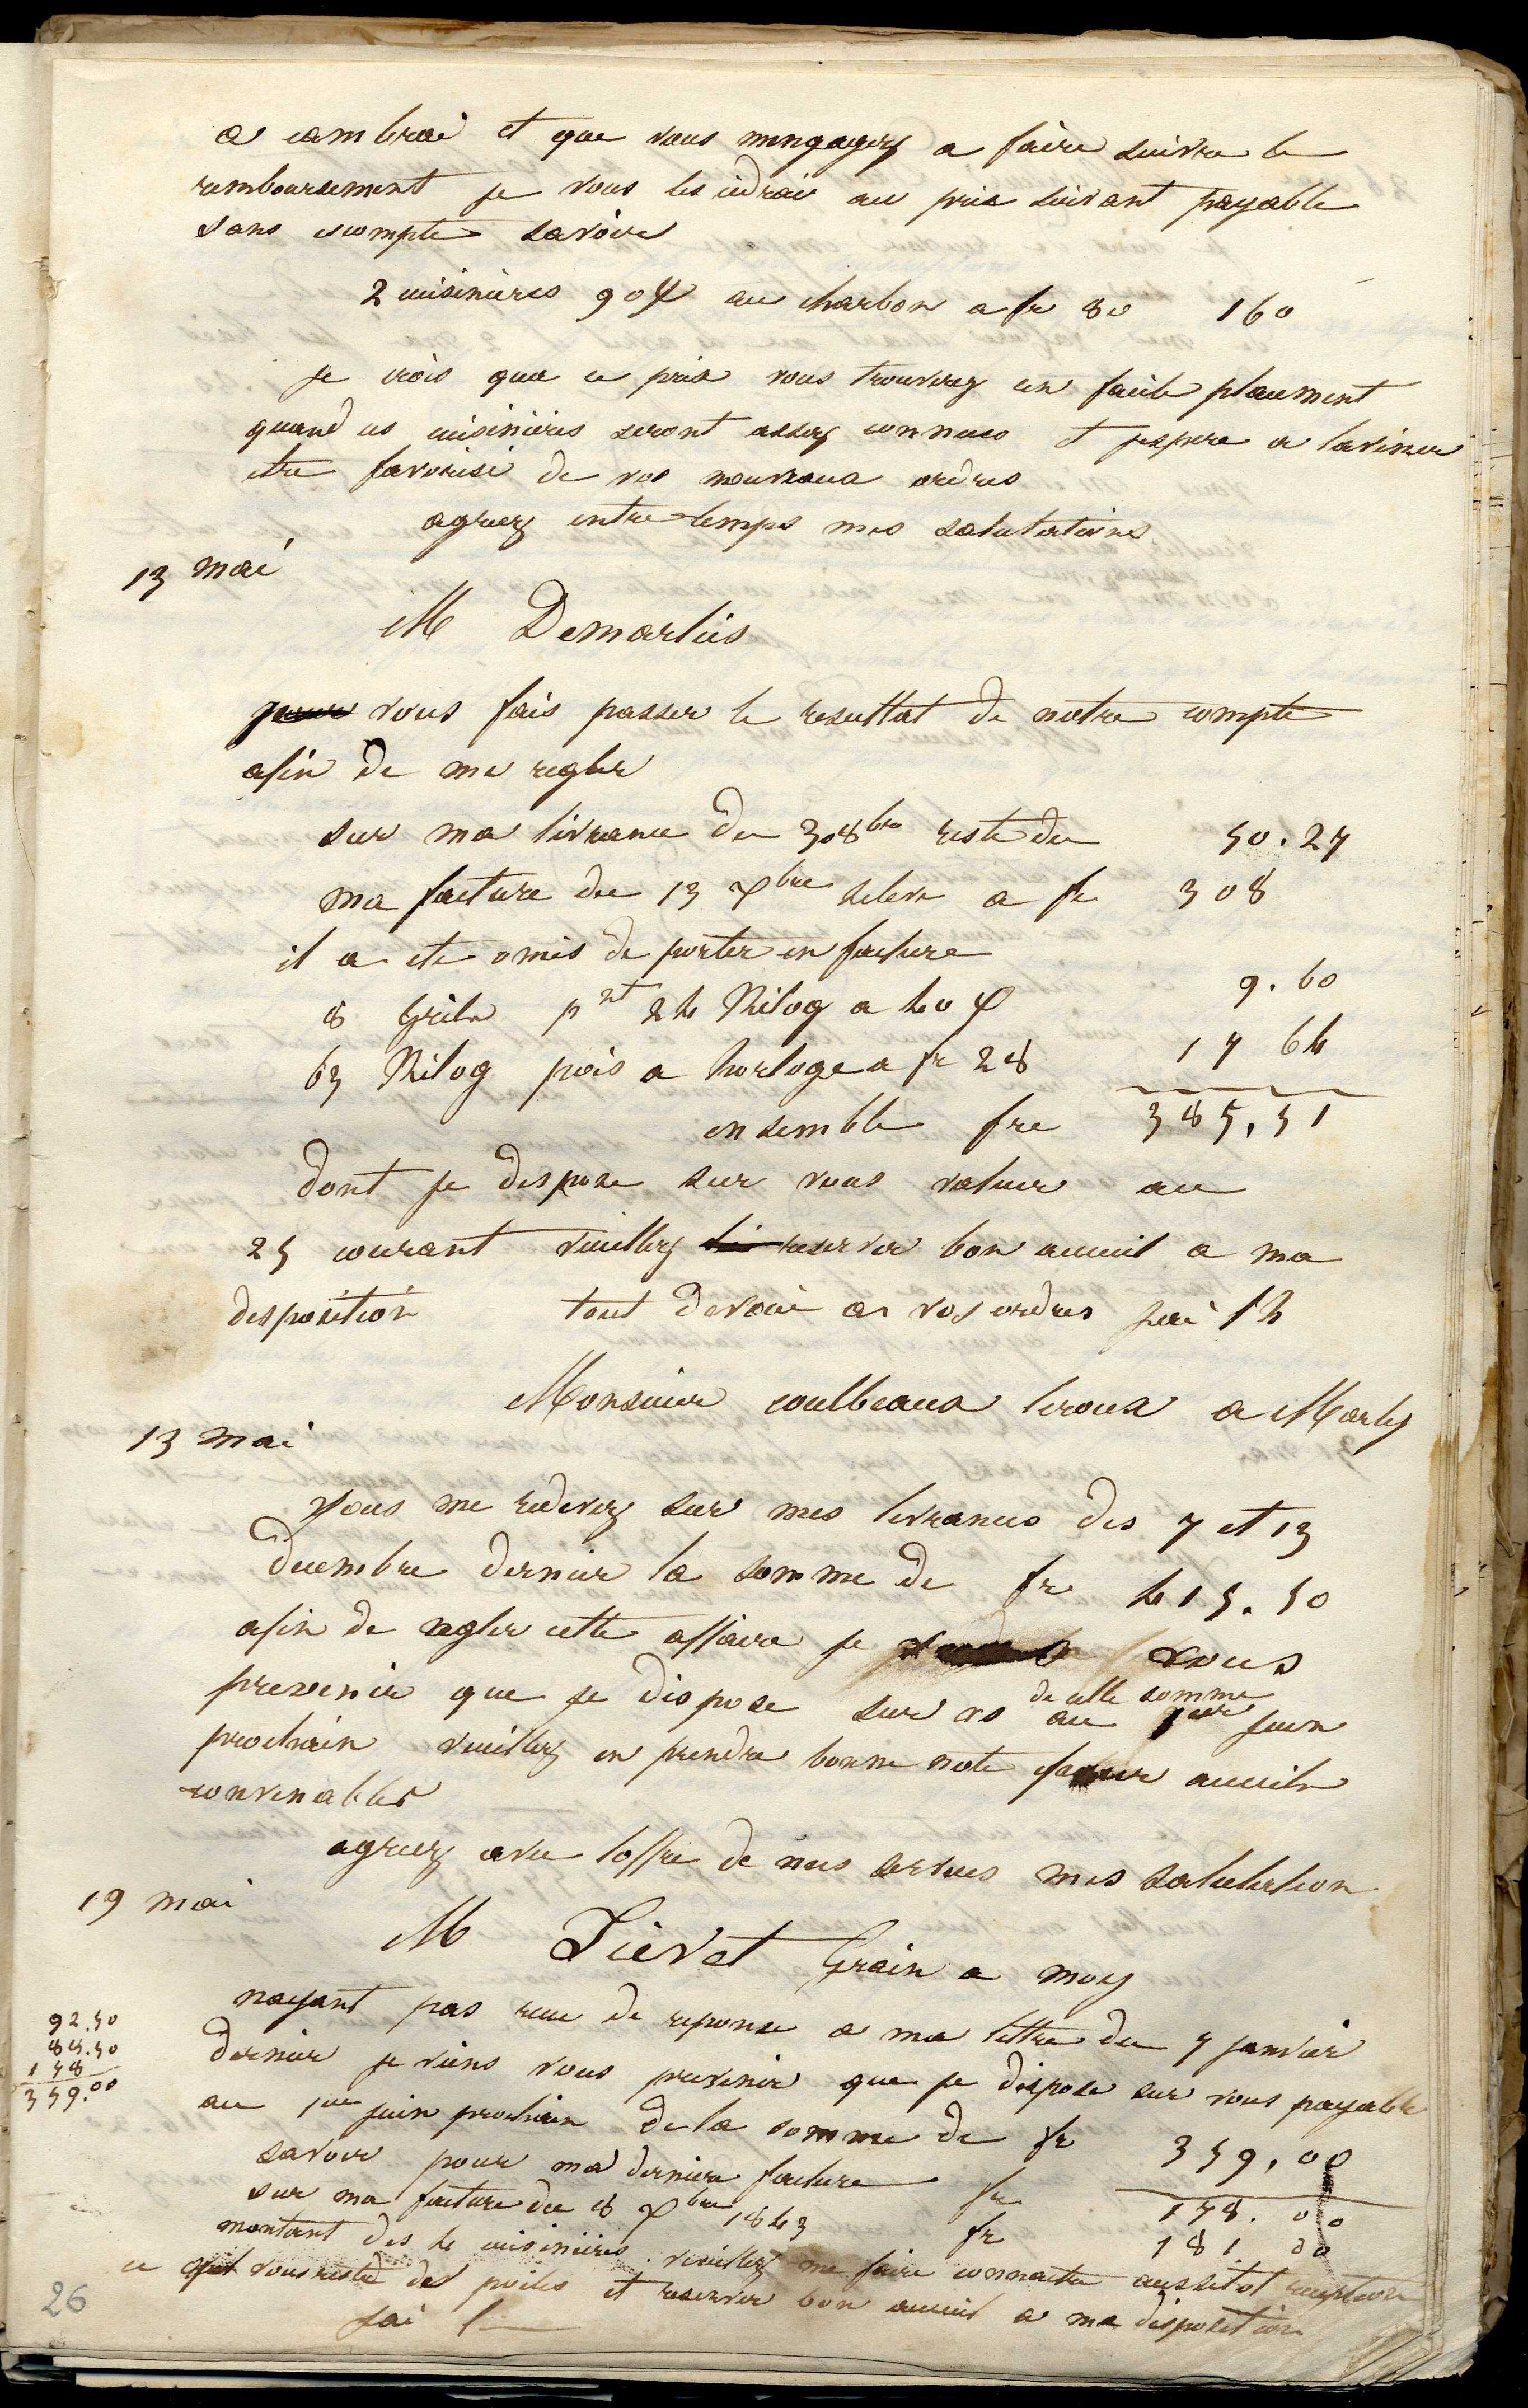 a cambrai et que vous mengagez a faire suivre le
remboursement je vous les cedrai au prix suivant payable
sans escompte savoir
2 cuisinieres 90 au charbon a fr 80 160
je crois que ce prix vous trouverez un facile placement
quand ces cuisinieres seront assez connues et jespere a lavenir
etre favorisé de vos nouveaux ordres
agreez entre temps mes salutations
13 mai
M Demarlies
vous fais passer le resultat de notre compte
afin de me regler
sur ma livrance du 30 8bre reste du 50.27
ma facture du 13 Xbre seleve a fr 308
il a ete omis de porter en facture
8 Grils pnt 24 Kilog a 40 9.60
63 Kilog pois a horloge a fr 28 17 64
ensemble frc 385.51
dont je despose sur vous valeur au
25 courant veuillez reserver bon acceuil a ma
desposition tout devoué a vos ordres jai lh
Monsieur coulbeaux leroux a Marly
13 mai
Vous me redevez sur mes livrances des 7 et 13
decembre dernier la somme de fr 415.50
afin de regler cette affaire je vous
de cette somme
prevenir que je dispose sur vs au 1er juin
prochain veuillez en prendre bonne note acceuil
convenables
agreez avec loffre de mes services mes salutation
19 mai
M Lievet Grain a moy
nayant pas recu de reponse a ma lettre du 7 janvier
92.50
dernier je viens vous prevenir que je dispose sur vous payable
88.50
178
359.00
au 1er juin prochain de la somme de fr 359,00
savoir pour ma derniere facture fr 178.00
sur ma facture du 8 Xbre 1843 fr 181 00
montant des 4 cuisinieres. veuillez me faire connaitre aussitot reception
ce quil vous reste des poiles et reserver bon acceuil a ma disposition
jai l
26